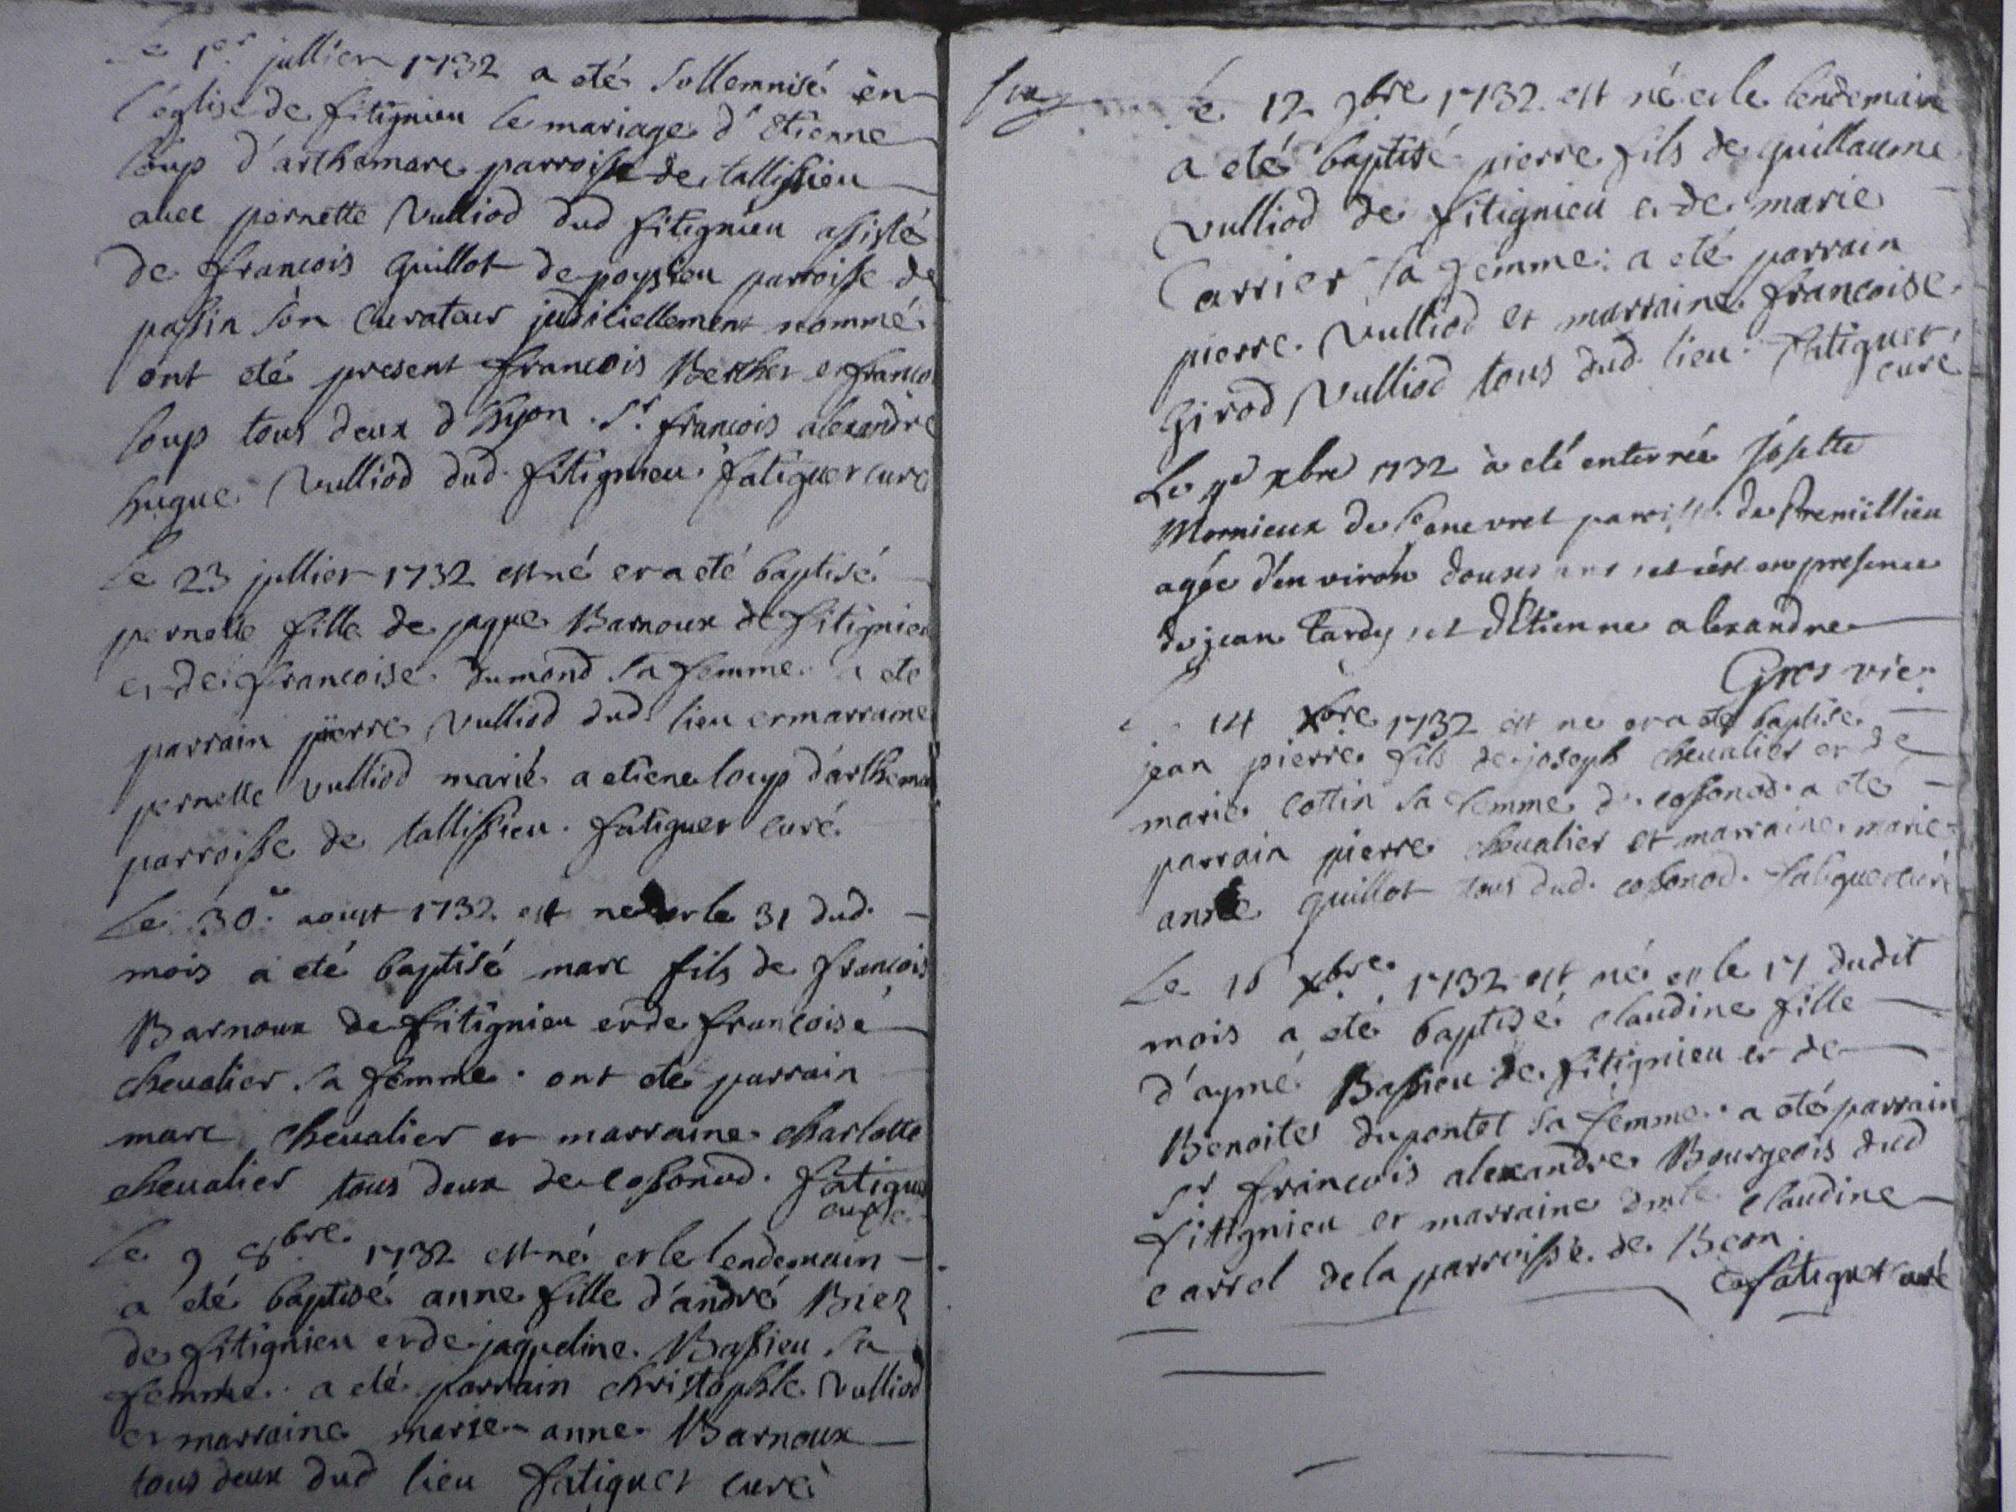 Le 1er jullier 1732 a eté sollemnisé en
l'église de fitignieu le mariage d'etienne
loup d'arthemare parroisse de tallissieu
avec pernette Vulliod dud fitignieu assisté
de francois Guillot de poysieu parroisse de
passin son Curateur judiciellement nommé.
ont eté present francois Berthet et franco
loup tous deux d'hyon. Sr. francois alexandre
hugue Vulliod dud. fitignieu. fatiguet curé
Le 23 jullier 1732 est né et a eté baptisé
pernette fille de jaque Barnoux de fitignieu
et de francoise dumond sa femme. a ete
parrain pierre Vulliod dud. lieu et marraine
pernette Vulliod marié a etiene loup d'arthema
parroisse de tallissieu. fatiguet curé.
Le 30e aoust 1732 est né et le 31 dud.
mois a eté baptisé marc fils de francois
Barnoux de fitignieu et de francoise
chevalier sa femme. ont eté parrain
marc chevalier et marraine charlotte
chevalier tous deux de cossonod. fatigue
curé.
le 9 8bre. 1732 est né et le lendemain
a eté baptisé anne fille d'andré Biez
de fitignieu et de jaqueline Bassieu sa
femme. a eté parrain christophle Vulliod
et marraine marie-anne Barnoux
tous deux dud lieu fatiguet curé
Le 12 9bre 1732 est né et le lendemain
a eté baptisé pierre fils de guillaume
Vulliod de fitignieu et de marie
Carrier sa femme: a eté parrain
pierre Vulliod et marraine francoise
Girod Vulliod tous dud. lieu. fatiguet
curé
Le 9e xbre 1732 à eté enterrée Josette
Mornieux de parroisse de Premillieu
agée d'environ douses ans en presence
de jean Tardy et d'Etienne alexandre
Gros vic.
14 Xbre 1732 est ne et a eté baptisé
jean pierre fils de joseph chevalier et de
marie cottin sa femme de cossonod. a eté
parrain pierre chevalier et marraine marie
anne guillot tous dud. cossonod. fatiguet curé
Le 16 xbre. 1732 est né et le 17 dudit
mois a eté baptisé claudine fille
d'aymé Bassieu de fitignieu et de
Benoite dupontet sa femme. a eté parrain
Sr francois alexandre Bourgeois dud
fitignieu et marraine dmlle claudine
carrel de la parroisse de Beon.
fatiguet curé